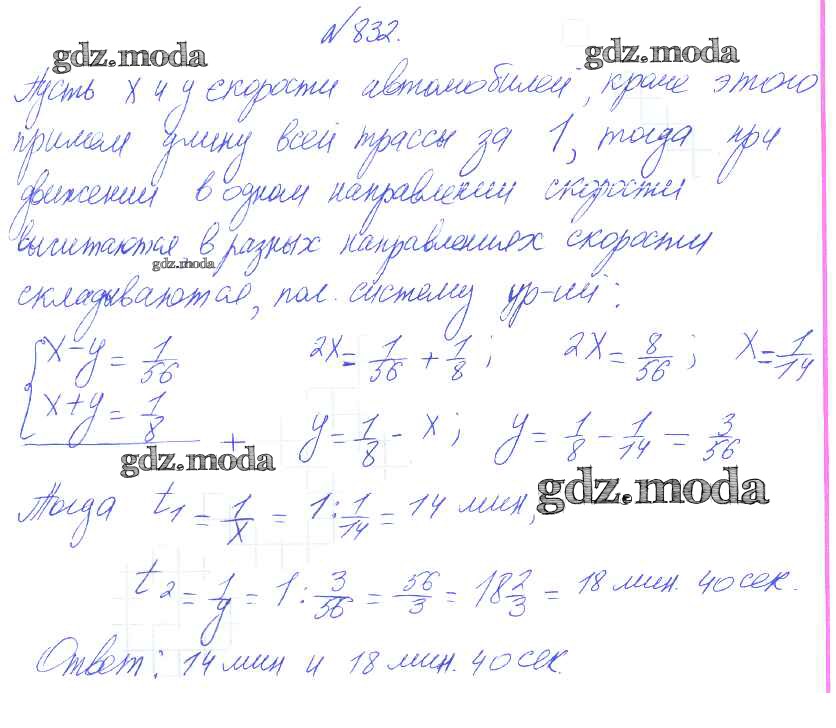 № 832.
gdz.moda
gdz.moda
Пусть x и y скорости автомобилей, кроме этого
примем длину всей трассы за 1, тогда при
движении в одном направлении скорости
вычитаются в разных направлениях скорости
gdz.moda
складываются, пол. систему ур-ий:
x-y = 1/56   2x = 1/56 + 1/8;   2x = 8/56;   x = 1/14
x+y = 1/8   +   y = 1/8 - x;   y = 1/8 - 1/14 = 3/56
gdz.moda
gdz.moda
Тогда t1 = 1/x = 1:1/14 = 14 мин,
t2 = 1/y = 1:3/56 = 56/3 = 18 2/3 = 18 мин. 40 сек.
Ответ: 14 мин и 18 мин. 40 сек.